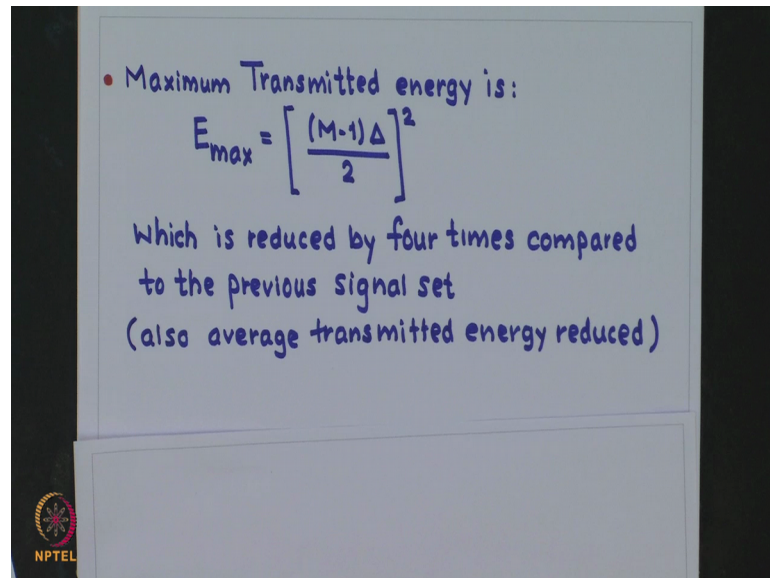 • Maximum Transmitted energy is:
E_max = [ (M-1) Δ / 2 ]²
Which is reduced by four times compared
to the previous signal set
(also average transmitted energy reduced)
NPTEL